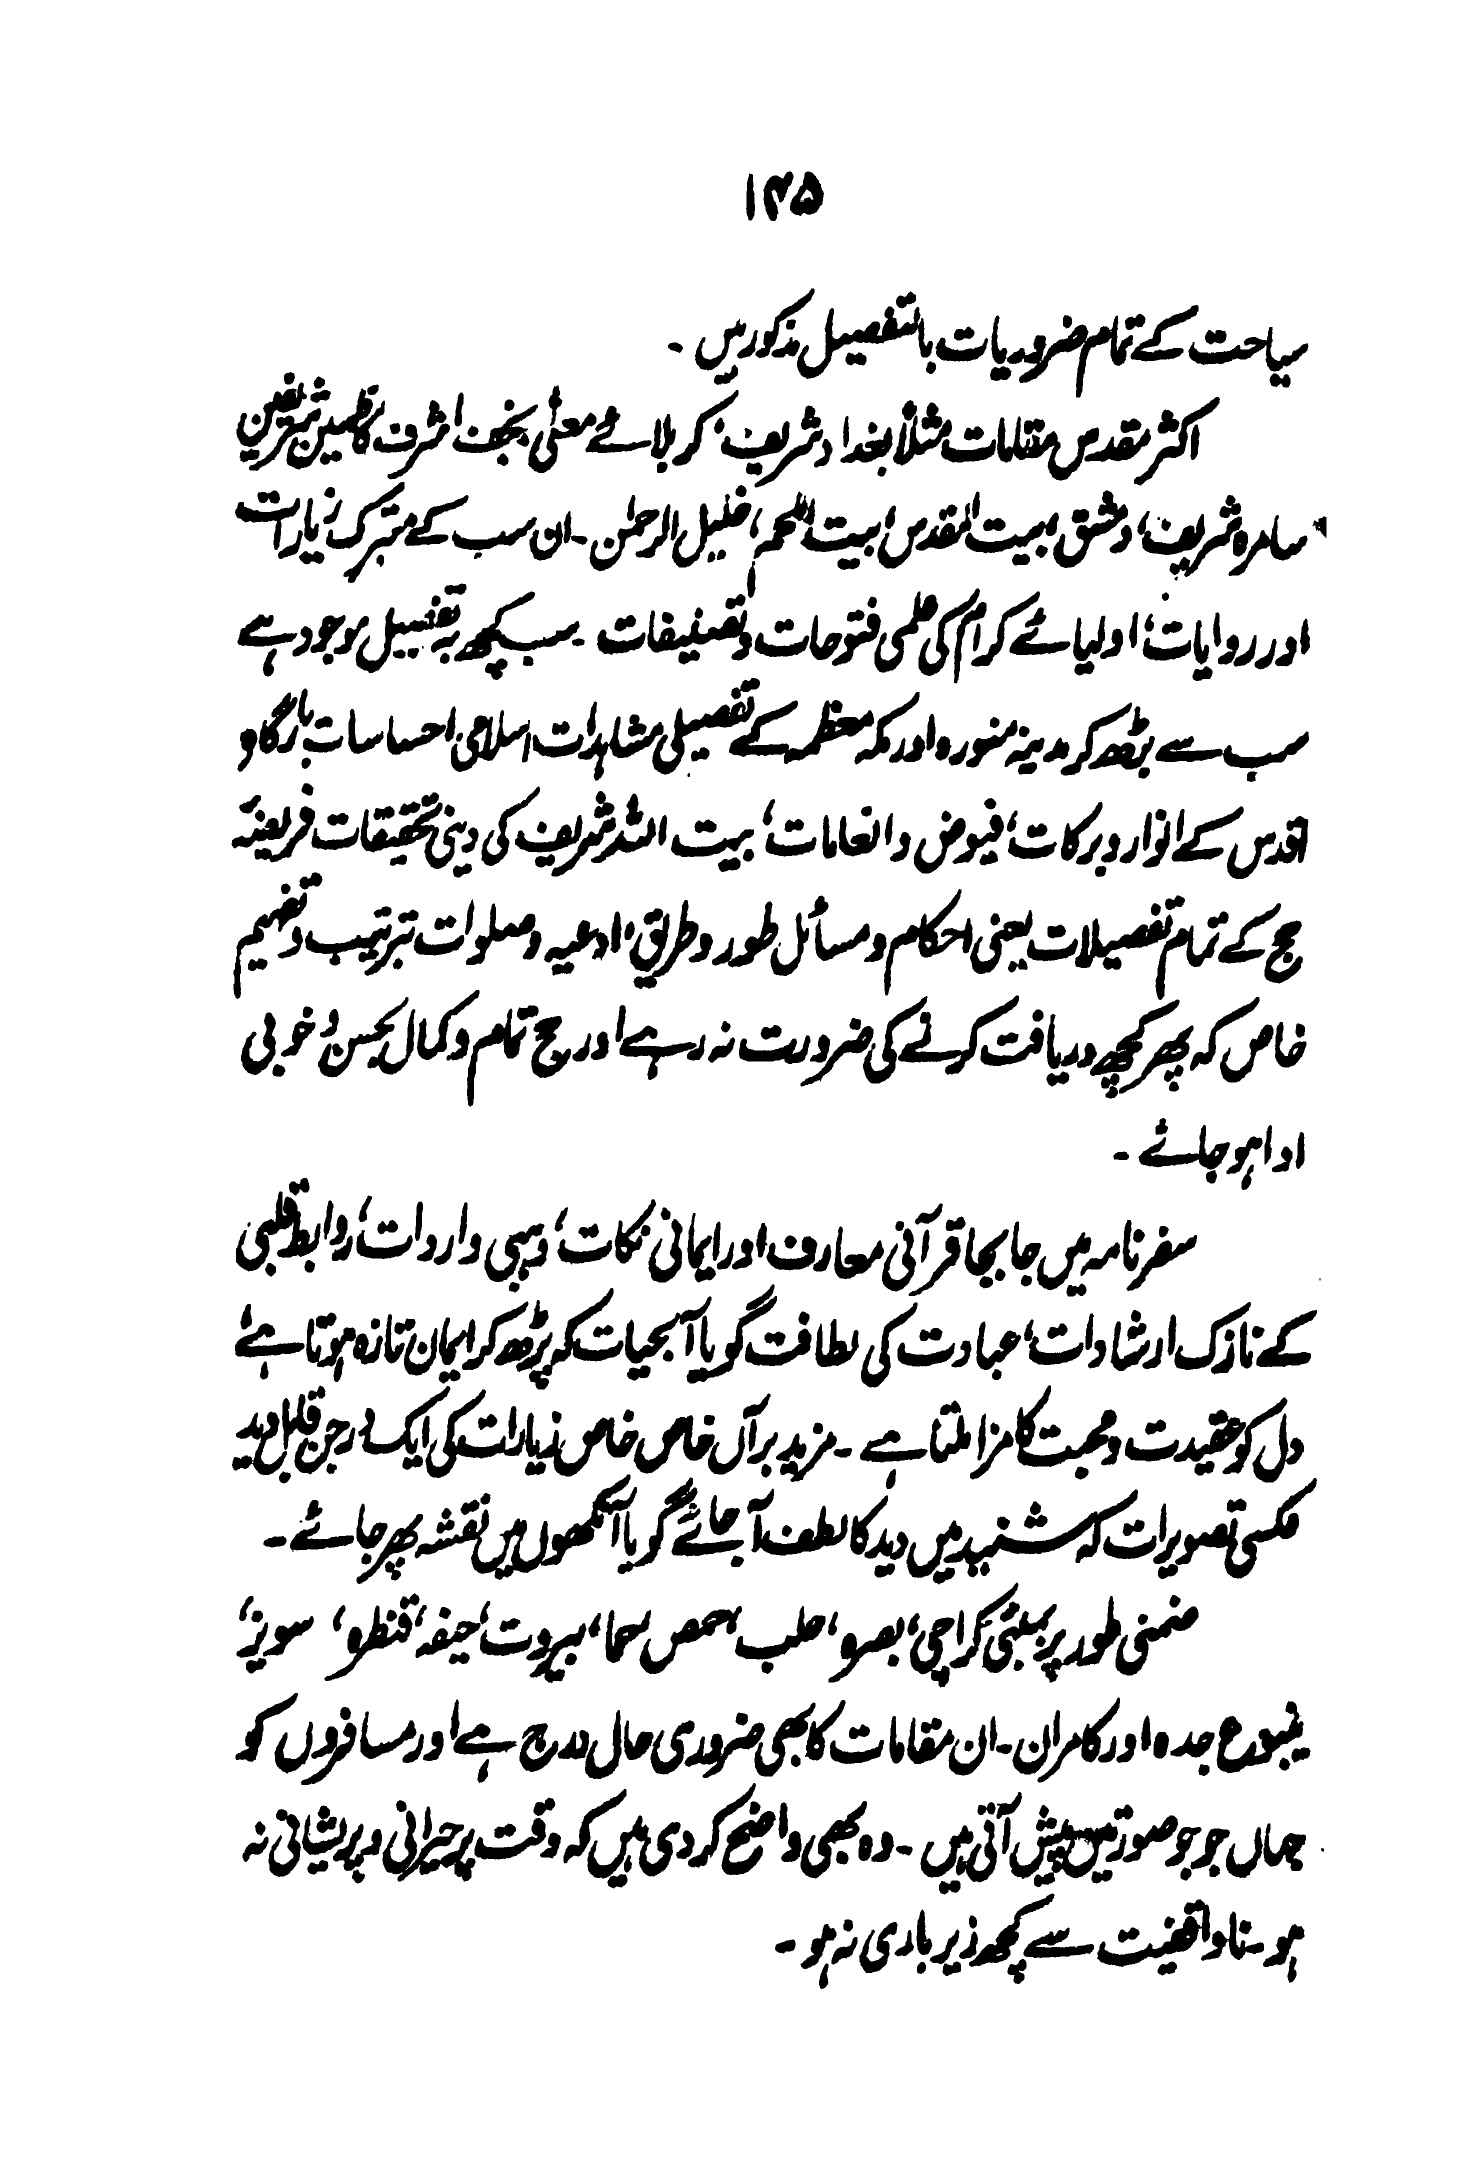 ۱۴۵
سیاحت کے تمام ضروریات بالتفصیل مذکور ہیں ۔
اکثر مقدس مقامات مثلاً بغداد شریف، کربلائے معلٰی نجف اشرف کاظمین شریفین
سامرہ شریف، دمشق، بیت المقدس، بیت اللحم، خلیل الرحمٰن ۔ ان سب کے متبرک زیارات
اور روایات، اولیائے کرام کی علمی فتوحات و تصنیفات ۔ سب کچھ بہ تفصیل موجود ہے
سب سے بڑھ کر مدینہ منورہ اور مکہ معظمہ کے تفصیلی مشاہدات اسلامی احساسات بارگاہ
اقدس کے انوار و برکات، فیوض و انعامات، بیت اللہ شریف کی دینی تحقیقات فریضۂ
حج کے تمام تفصیلات یعنی احکام و مسائل طور و طریق، ادعیہ و صلوات تبرتیب و تفہیم
خاص کہ پھر کچھ دریافت کرنے کی ضرورت نہ رہے اور حج تمام و کمال بحسن و خوبی
ادا ہو جائے ۔
سفرنامہ میں جا بجا قرآنی معارف اور ایمانی نکات، وہبی واردات، روابط قلبی
کے نازک ارشادات، عبادت کی لطافت گویا آبحیات کہ پڑھ کر ایمان تازہ ہوتا ہے
دل کو عقیدت و محبت کا مزا ملتا ہے ۔ مزید برآں خاص خاص زیارات کی ایک درجن قابل دید
عکسی تصویرات کہ شنید میں دید کا لطف آجائے گویا آنکھوں میں نقشہ پھر جائے ۔
ضمنی طور پر بمبئی کراچی، بصرہ، حلب، حمص، حما، بیروت، حیفہ، قنطرہ، سویز،
ینبوع جدہ اور کامران ۔ ان مقامات کا بھی ضروری حال درج ہے اور مسافروں کو
جہاں جو جو صورتیں پیش آتی ہیں ۔ وہ بھی واضح کر دی ہیں کہ وقت پر حیرانی و پریشانی نہ
ہو ۔ ناواقفیت سے کچھ زیر باری نہ ہو ۔